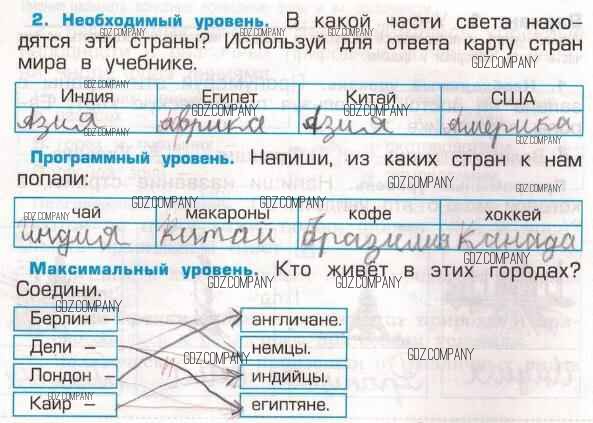 2. Необходимый уровень. В какой части света нахо-
дятся эти страны? Используй для ответа карту стран
мира в учебнике.
Индия Египет Китай США
Азия африка Азия Америка
Программный уровень. Напиши, из каких стран к нам
попали:
чай макароны кофе хоккей
индия Китай Бразилия Канада
Максимальный уровень. Кто живёт в этих городах?
Соедини.
Берлин – англичане.
Дели – немцы.
Лондон – индийцы.
Каир – египтяне.
GDZ.COMPANY